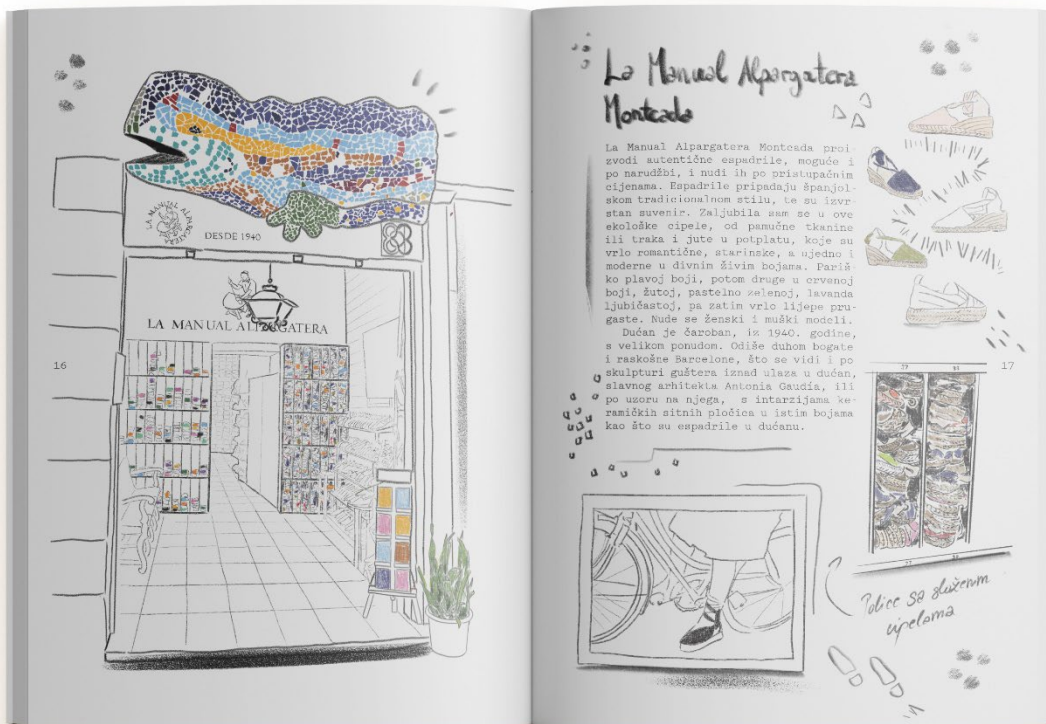 LA MANUAL ALPARGATERA
DESDE 1940
LA MANUAL ALPARGATERA
16
La Manual Alpargatera
Montcada
La Manual Alpargatera Montcada proi-
zvodi autentične espadrile, moguće i
po narudžbi, i nudi ih po pristupačnim
cijenama. Espadrile pripadaju španjol-
skom tradicionalnom stilu, te su izvr-
stan suvenir. Zaljubila sam se u ove
ekološke cipele, od pamučne tkanine
ili traka i jute u potplatu, koje su
vrlo romantične, starinske, a ujedno i
moderne u divnim živim bojama. Pariš-
ko plavoj boji, potom druge u crvenoj
boji, žutoj, pastelno zelenoj, lavanda
ljubičastoj, pa zatim vrlo lijepe pru-
gaste. Nude se ženski i muški modeli.
Dućan je čaroban, iz 1940. godine,
s velikom ponudom. Odiše duhom bogate
i raskošne Barcelone, što se vidi i po
skulpturi guštera iznad ulaza u dućan,
slavnog arhitekta Antonia Gaudía, ili
po uzoru na njega, s intarzijama ke-
ramičkih sitnih pločica u istim bojama
kao što su espadrile u dućanu.
17
Police sa složenim
cipelama